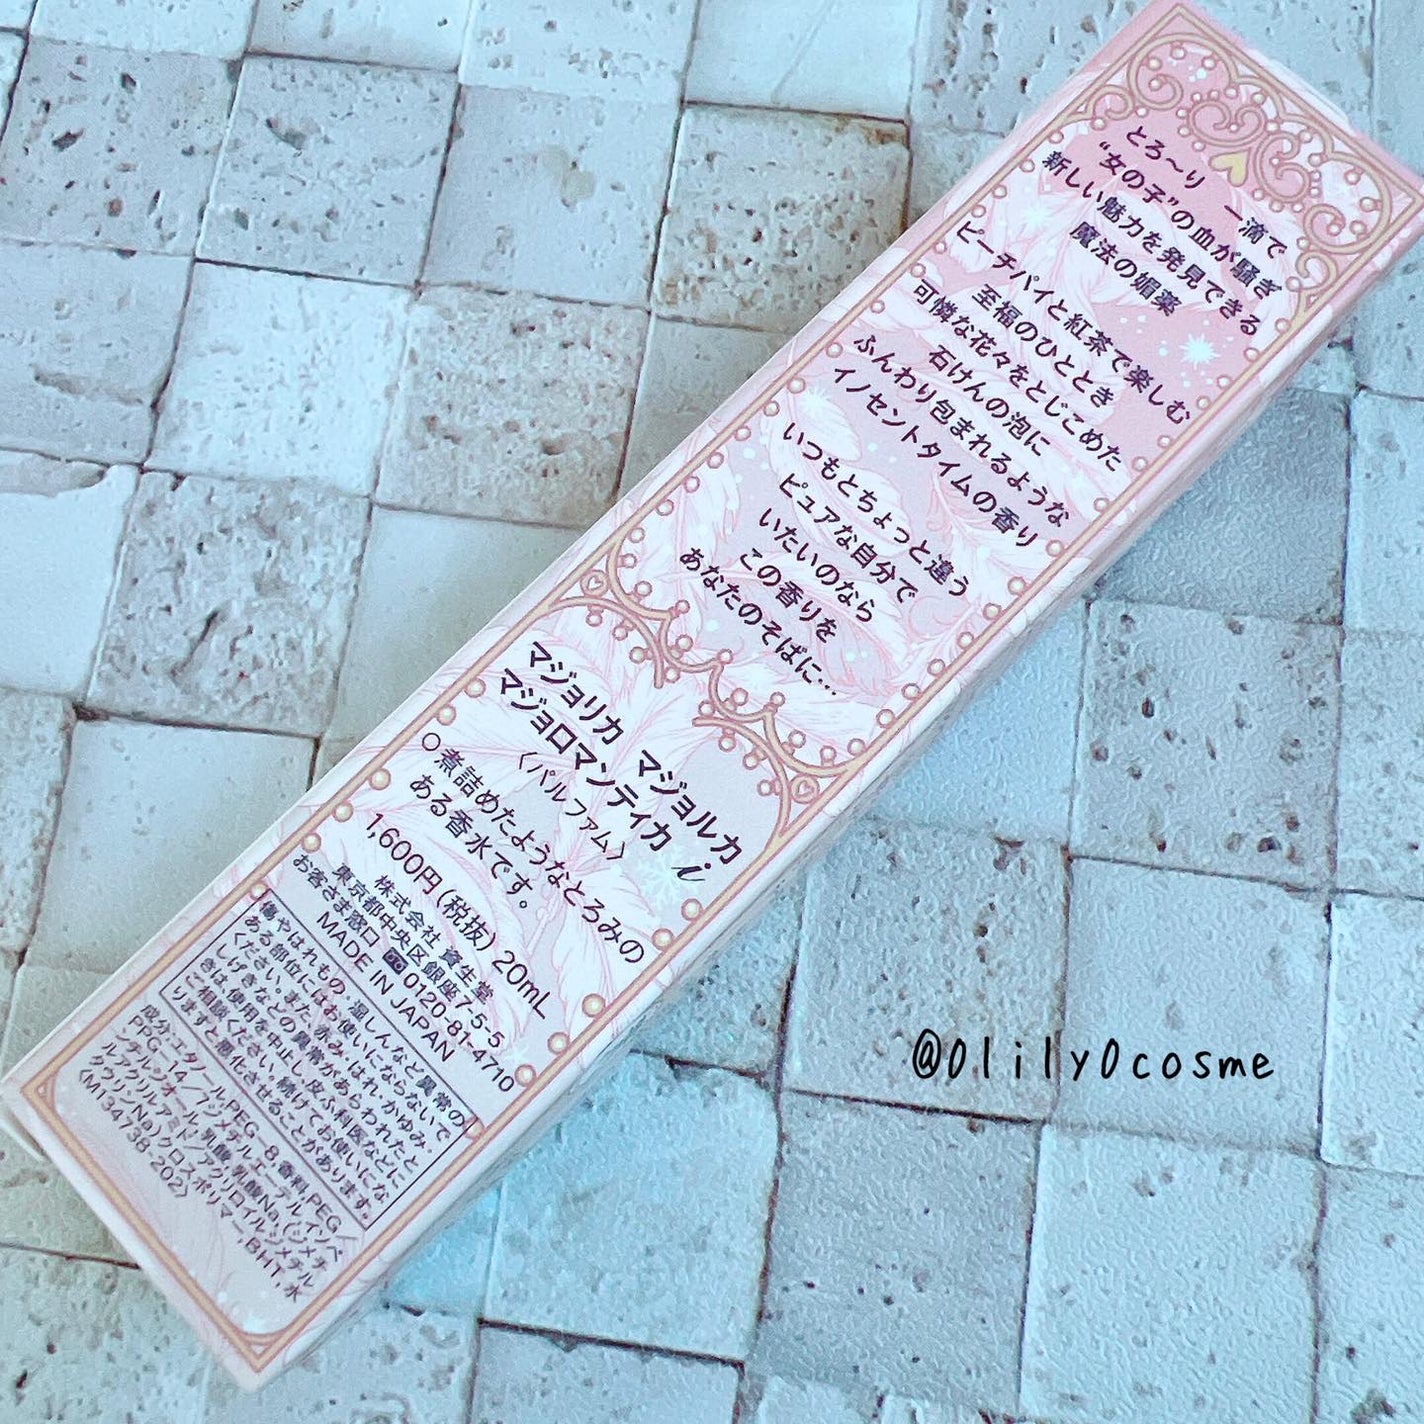 とろ〜り 一滴で
“女の子”の血が騒ぎ
新しい魅力を発見できる
魔法の媚薬
ピーチパイと紅茶で楽しむ
至福のひととき
可憐な花々をとじこめた
石けんの泡に
ふんわり包まれるような
イノセントタイムの香り
いつもとちょっと違う
ピュアな自分で
いたいのなら
この香りを
あなたのそばに…
マジョリカ マジョルカ
マジョロマンティカ i
〈パルファム〉
○煮詰めたようなとろみの
ある香水です。
1,600円(税抜) 20mL
株式会社 資生堂
東京都中央区銀座7-5-5
お客さま窓口 0120-81-4710
MADE IN JAPAN
傷やはれもの・湿しんなど異常の
ある部位にはお使いにならないで
ください。また、赤み・はれ・かゆみ・
しげきなどの異常があらわれたと
きは、使用を中止し、皮ふ科医などに
ご相談ください。続けてお使いにな
りますと悪化させることがあります。
成分:エタノール,PEG-8,香料,PEG/
PPG-14/7ジメチルエーテル,イソペ
ンチルジオール,乳酸,乳酸Na,(ジメチ
ルアクリルアミド/アクリロイルジメチル
タウリンNa)クロスポリマー,BHT,水
〈M134738-202〉
@0lily0cosme